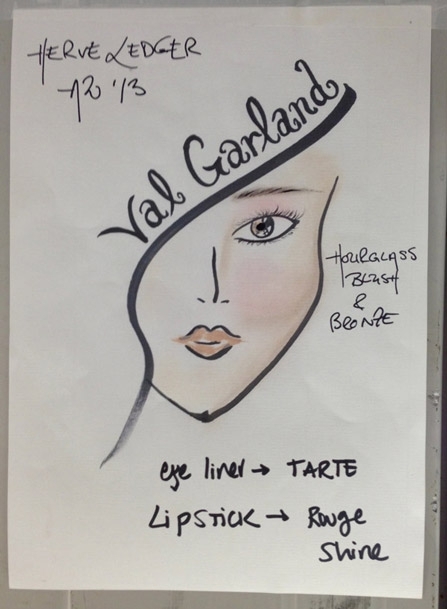 HERVE LEDGER
A2 '13
Val Garland
HOURGLASS
BLUSH
&
BRONZE
eye liner → TARTE
LipSTiCK → Rouge
Shine